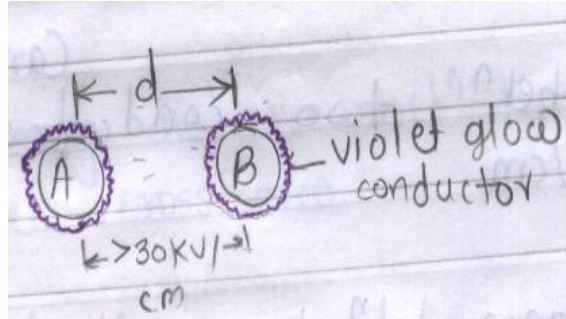 d
A
B
violet glow
conductor
>30KV/
cm